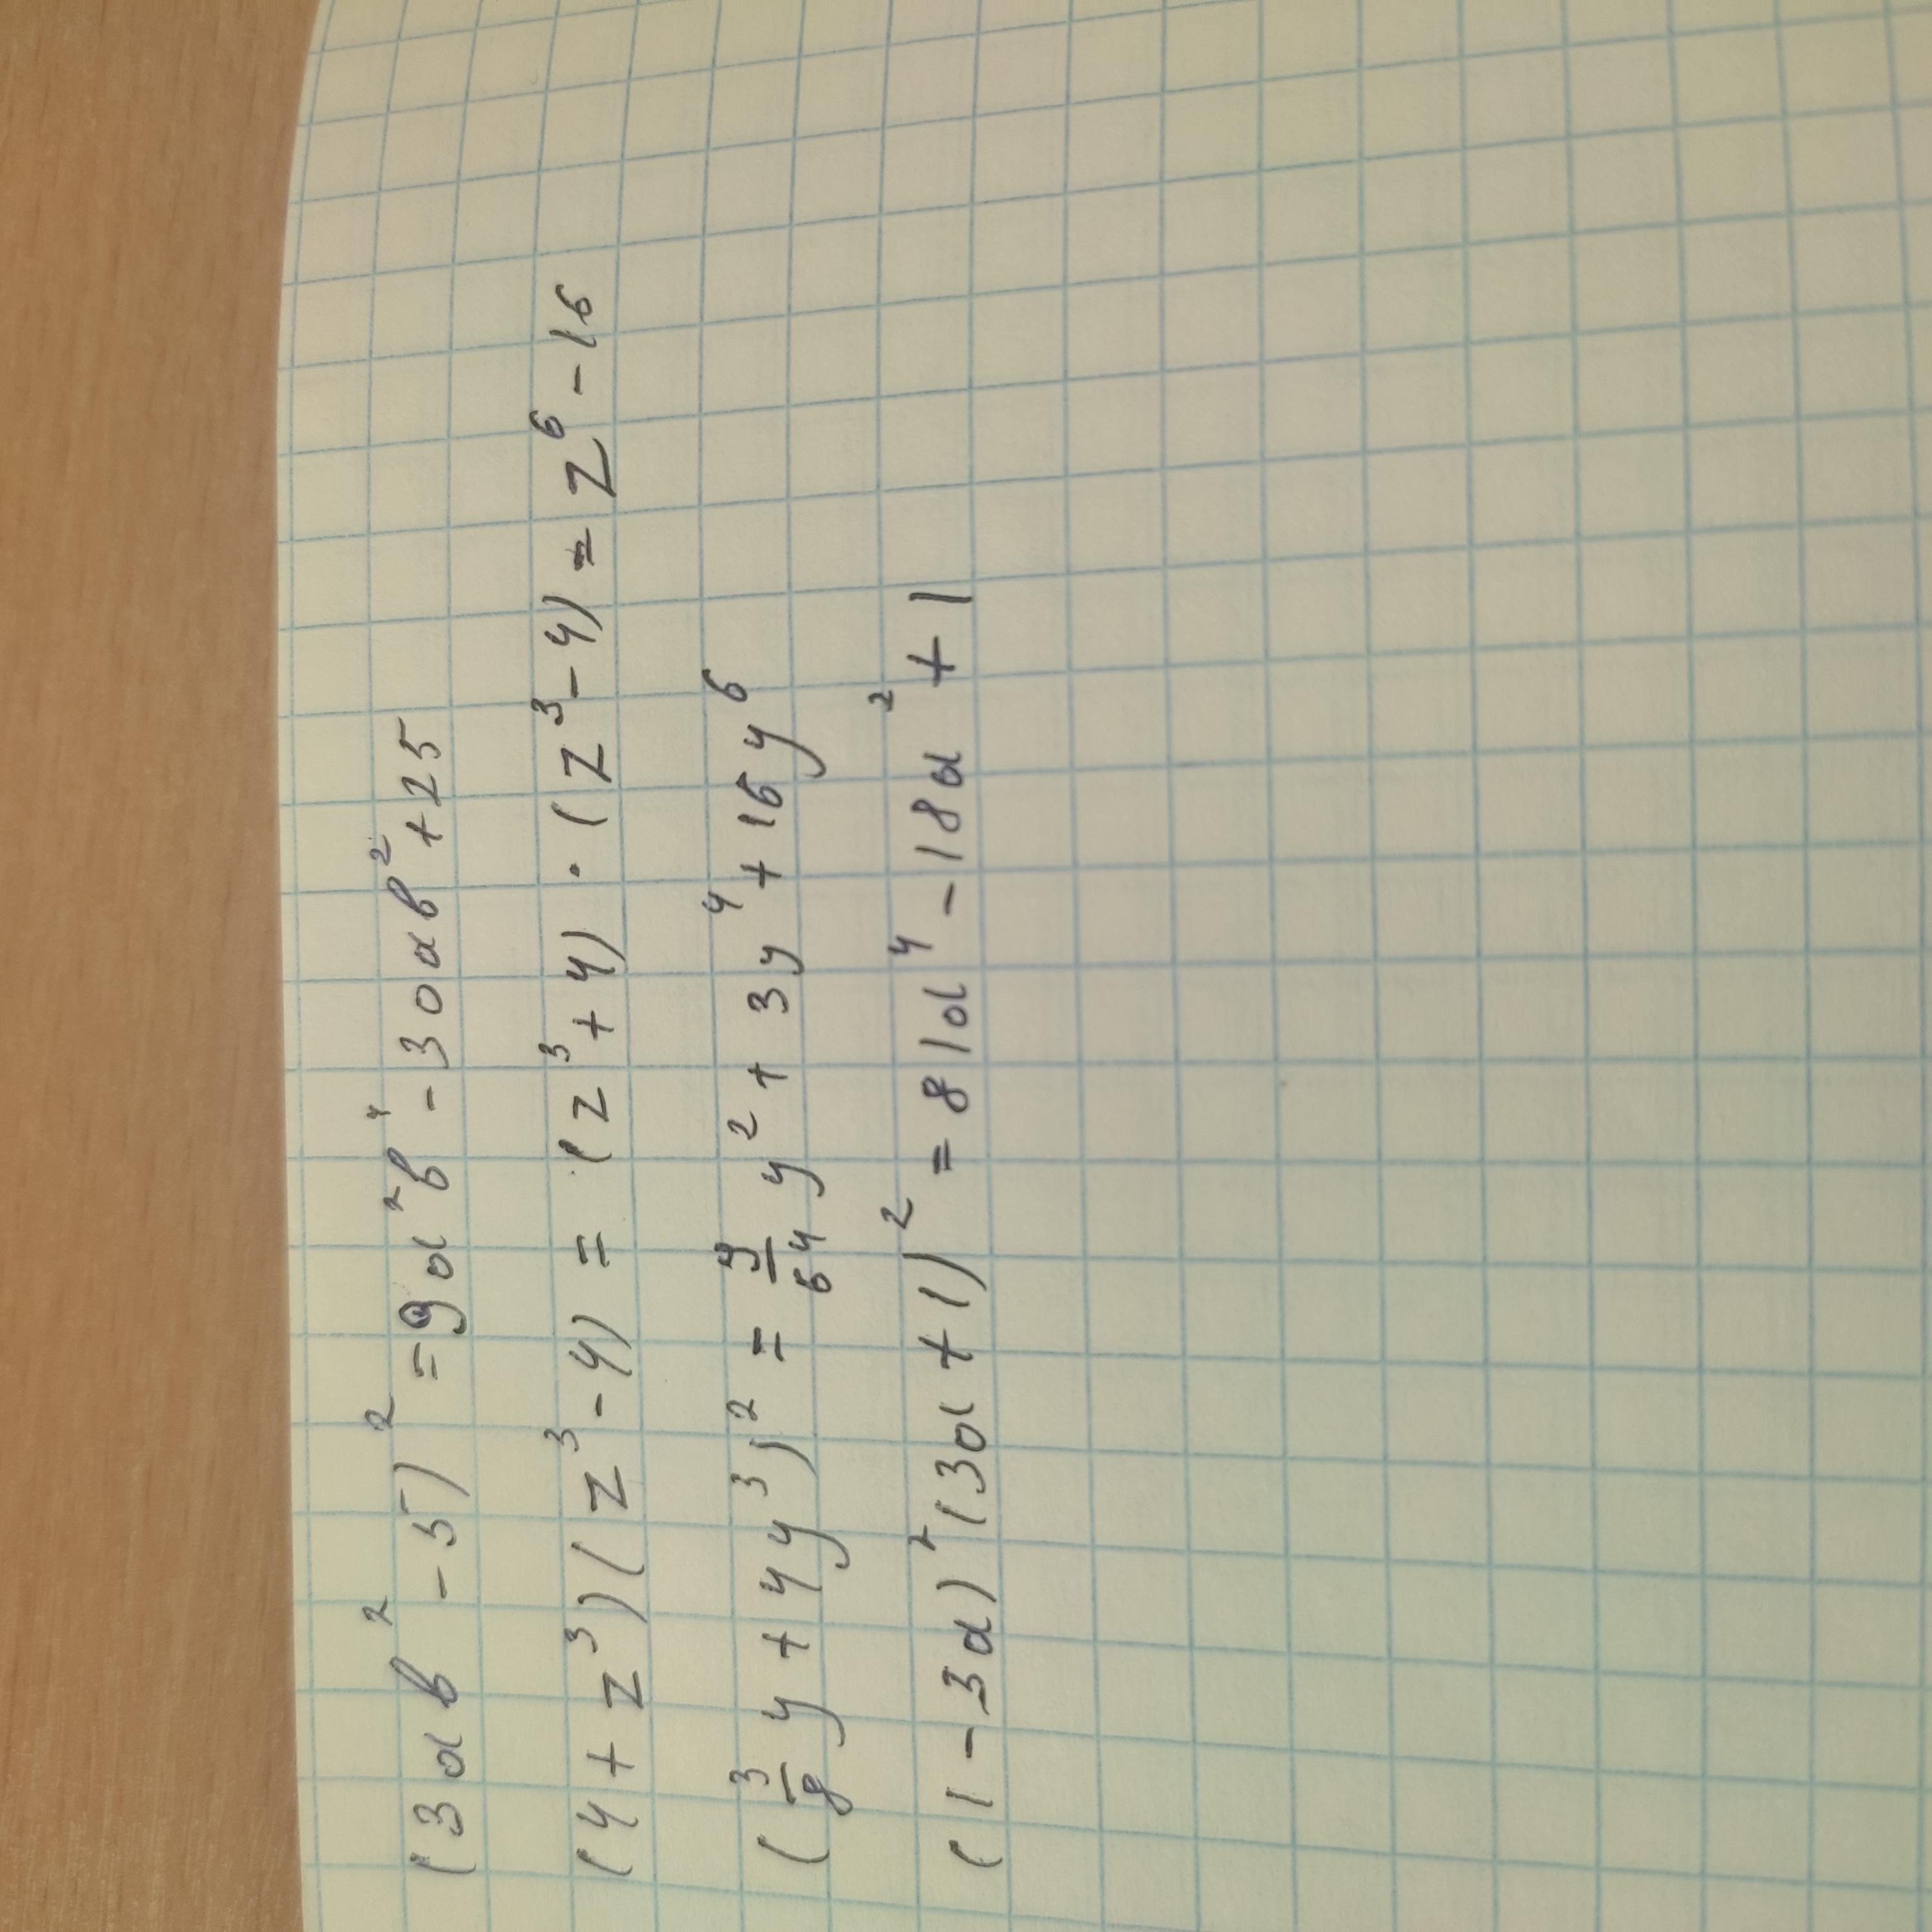 (3ab² - 5)² = 9a²b⁴ - 30ab² + 25
(4 + z³)(z³ - 4) = (z³ + 4) · (z³ - 4) = z⁶ - 16
(3/8 y + 4y³)² = 9/64 y² + 3y⁴ + 16y⁶
(1 - 3a)²(3a + 1)² = 81a⁴ - 18a² + 1